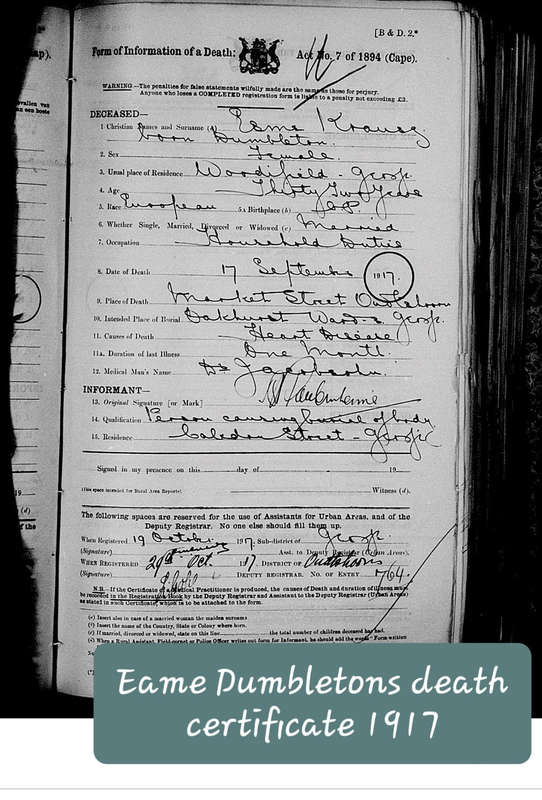 [B & D. 2.*
Form of Information of a Death: Act No. 7 of 1894 (Cape).
WARNING.—The penalties for false statements wilfully made are the same as those for perjury.
Anyone who loses a COMPLETED registration form is liable to a penalty not exceeding £3.
DECEASED—
1 Christian Names and Surname (a) Esme Krause
born Dumbleton.
2. Sex Female.
3. Usual place of Residence Woodifield - George.
4. Age Thirty Two Years
5. Race European 5A Birthplace (b) C.P.
6. Whether Single, Married, Divorced or Widowed (c) Married
7. Occupation Household Duties
8. Date of Death 17 September 1917.
9. Place of Death Market Street Oudtshoorn
10. Intended Place of Burial Oakhurst Ward 2 George.
11. Causes of Death Heart Disease
11a. Duration of last Illness One Month.
12. Medical Man's Name Dr
INFORMANT—
13. Original Signature [or Mark]
14. Qualification Person causing burial of body
15. Residence Caledon Street - George
Signed in my presence on this day of 19
(This space intended for Rural Area Reports) Witness (d).
The following spaces are reserved for the use of Assistants for Urban Areas, and of the
Deputy Registrar. No one else should fill them up.
When Registered 19 October 1917. Sub-district of George.
(Signature) Asst. to Deputy Registrar (Urban Areas).
WHEN REGISTERED 29th Oct. 1917. DISTRICT OF Oudtshoorn
(Signature) DEPUTY REGISTRAR. NO. OF ENTRY 764
N.B.—If the Certificate of a Medical Practitioner is produced, the causes of Death and duration of illness must
be recorded in the Registration Book by the Deputy Registrar and Assistant to the Deputy Registrar (Urban Areas)
as stated in such Certificate, which is to be attached to the form.
(a) Insert also in case of a married woman the maiden surname
(b) Insert the name of the Country, State or Colony where born.
(c) If married, divorced or widowed, state on this line the total number of children deceased has had.
(d) When a Rural Assistant, Field-cornet or Police Officer writes out form for Informant, he should add the words "Form written
Eame Dumbletons death
certificate 1917